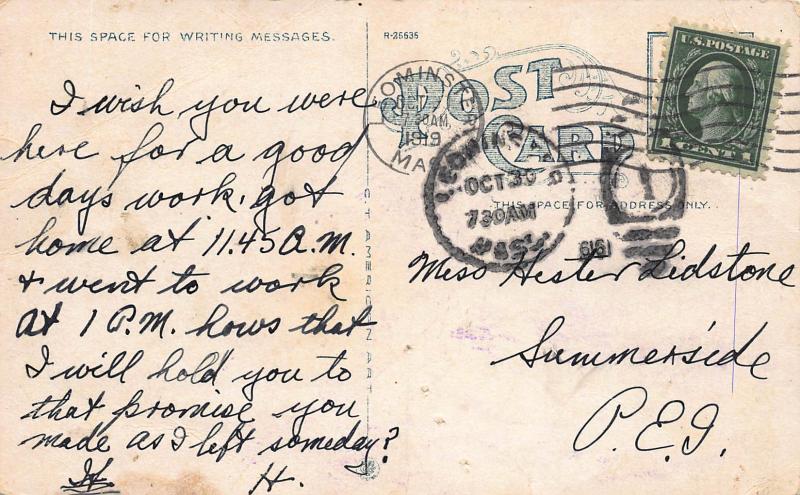 THIS SPACE FOR WRITING MESSAGES.
R-25635
POST
CARD
U.S. POSTAGE
1 CENT 1
LEOMINSTER
OCT
7 30AM
1919
MASS.
LEOMINSTER
OCT 30
730AM
MASS.
1
THIS SPACE FOR ADDRESS ONLY.
I wish you were
here for a good
days work. got
home at 11.45 A.M.
+ went to work
at 1 P.M. hows that
I will hold you to
that promise you
made as I left someday?
H.
Miss Hester Lidstone
Summerside
P.E.I.
AMERICAN ART